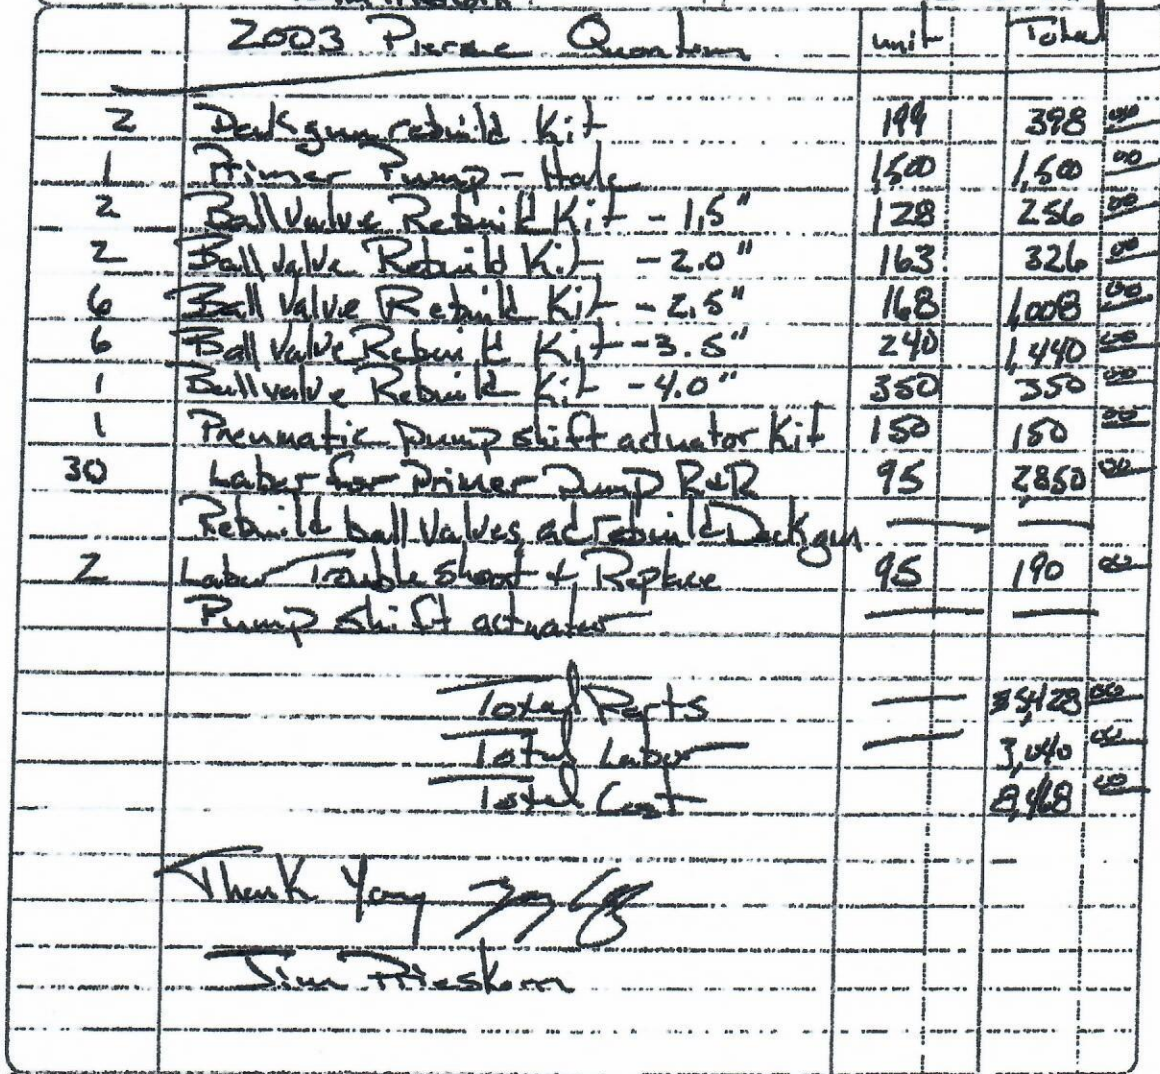 2003 Pierce Quantum unit Total
2 Deck gun rebuild Kit 199 398 00
1 Primer Pump - Hale 1,500 1,500 00
2 Ball Valve Rebuild Kit - 1.5" 128 256 00
2 Ball valve Rebuild Kit - 2.0" 163 326 00
6 Ball Valve Rebuild Kit - 2.5" 168 1,008 00
6 Ball Valve Rebuild Kit - 3.5" 240 1,440 00
1 Ball valve Rebuild Kit - 4.0" 350 350 00
1 Pneumatic pump shift actuator Kit 150 150 00
30 Labor for Primer Pump R+R 95 2850 00
Rebuild ball Valves, ad rebuild Deck gun
2 Labor Trouble Shoot + Replace 95 190 00
Pump shift actuator
Total Parts 5,428 00
Total Labor 3,040 00
Total Cost 8,468 00
Thank You
Jim